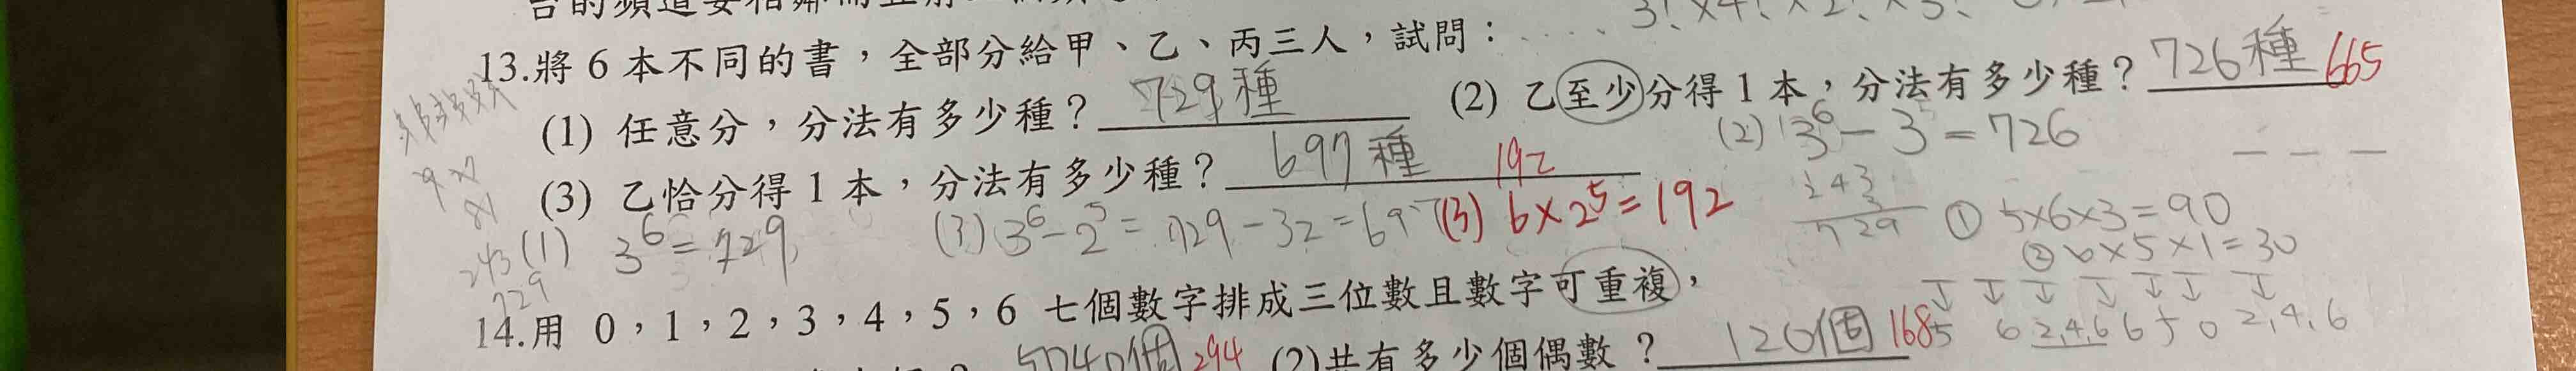 13.將 6 本不同的書，全部分給甲、乙、丙三人，試問：
(1) 任意分，分法有多少種？ 729種 (2) 乙至少分得 1 本，分法有多少種？ 726種 665
(2) 3⁶ - 3 = 726
(3) 乙恰分得 1 本，分法有多少種？ 697種 192
(1) 3⁶ = 729 (3) 3⁶ - 2⁵ = 729 - 32 = 697 (3) 6×2⁵ = 192
243
3
729
① 5×6×3=90
② 6×5×1=30
9
81
243
729
14.用 0，1，2，3，4，5，6 七個數字排成三位數且數字可重複，
5 6 2,4,6 6 5 0 2,4,6
5040個 294 (2)共有多少個偶數？ 120個 168